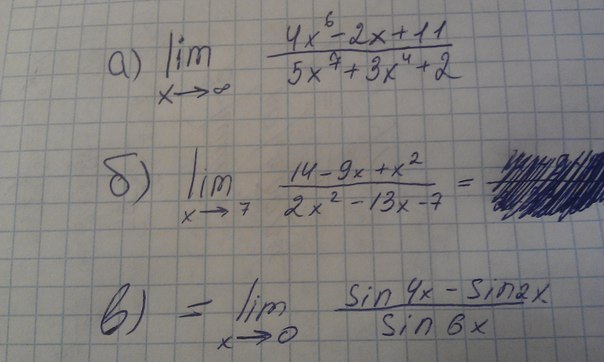 а) lim 4x⁶ - 2x + 11
x→∞ 5x⁷ + 3x⁴ + 2
б) lim 14 - 9x + x² =
x→7 2x² - 13x - 7
в) = lim sin 4x - sin 2x
x→0 sin 6x